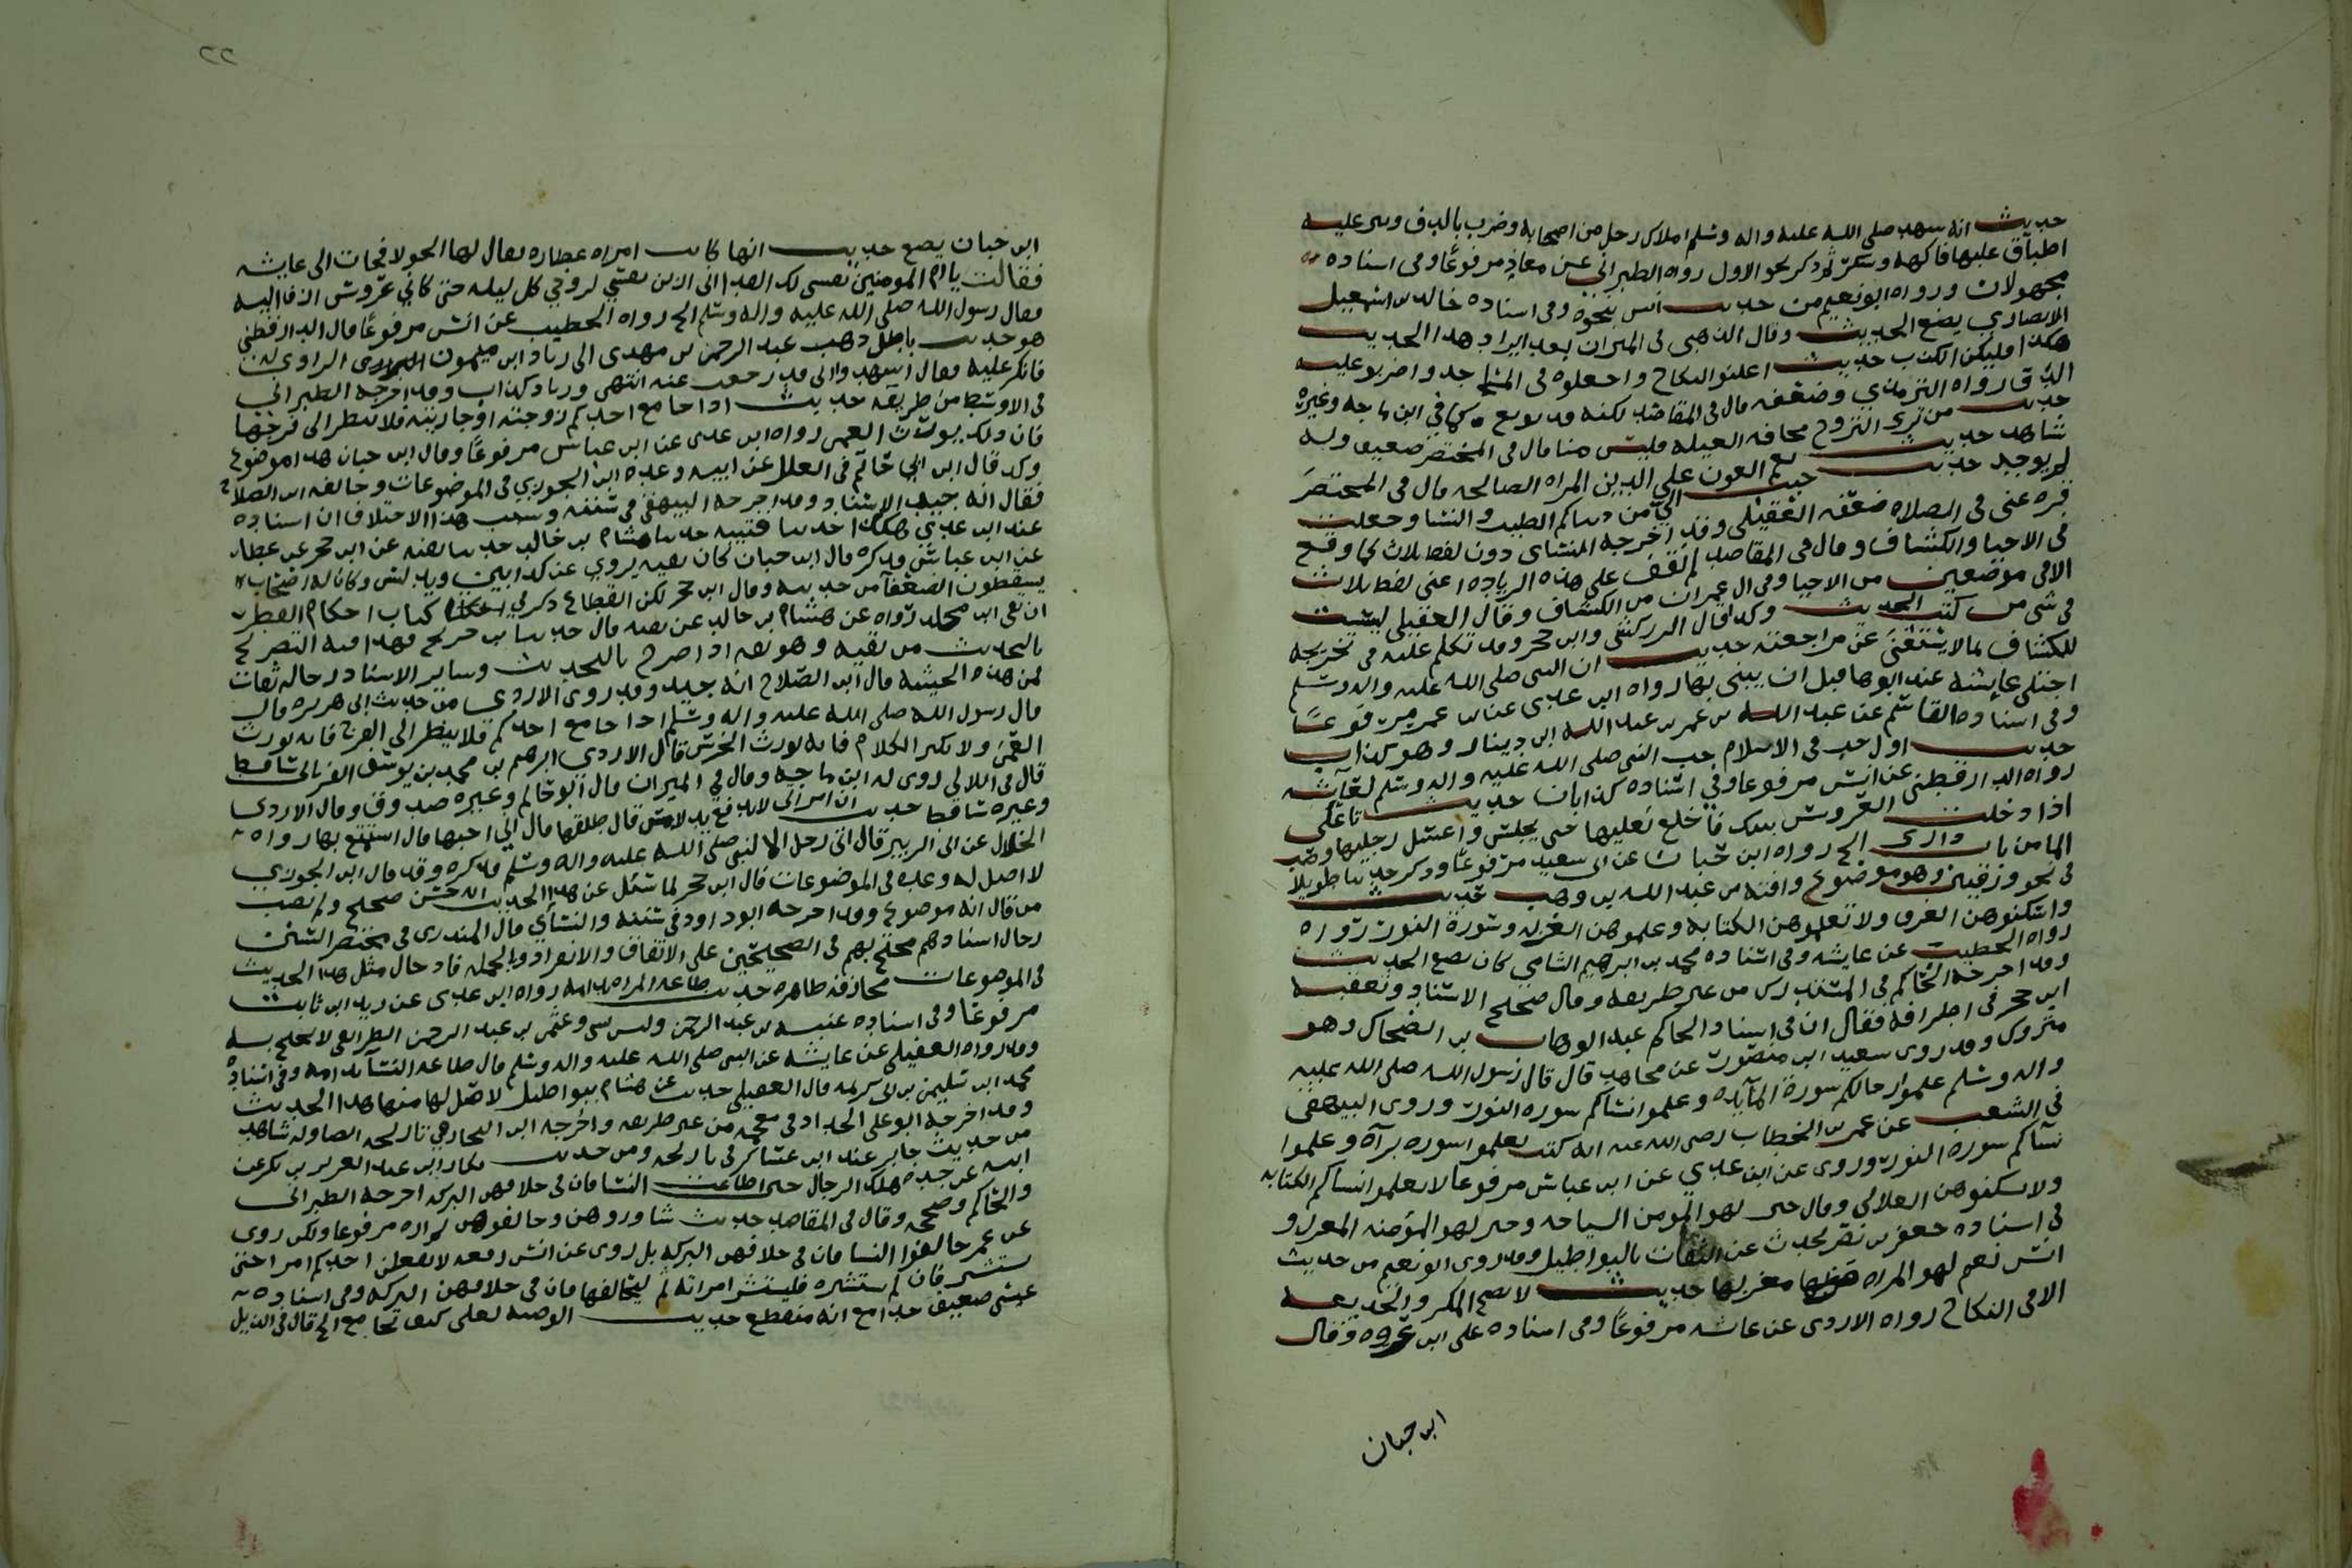 حديث انه شهد صلى الله عليه واله وسلم املاك رجل من اصحابه وضرب بالدف ونثر عليه
اطباق عليها فاكهه وسكر ثم ذكر نحو الاول رواه الطبراني عن معاذ مرفوعًا وفى اسناده
مجهولان ورواه ابونعيم من حديث انس بنحوه وفى اسناده خالد بن اسمعيل
الانصاري يضع الحديث وقال الذهبى فى الميزان بعد ايراد هذا الحديث
هكذا فليكن الكذب حديث اعلنوا النكاح واجعلوه فى المساجد واضربوا عليه
الدفاف رواه الترمذي وضعفه قال فى المقاصد لكنه قد توبع كما في ابن ماجه وغيره
حديث من ترك التزوج مخافه العيله فليس منا قال فى المختصر ضعيف وله
شاهد حديث نعم العون على الدين المراه الصالحه قال فى المختصر
لم يوجد حديث حبب الي من دنياكم الطيب والنسا وجعلت
قره عينى فى الصلاه ضعفه العقيلى وقد اخرجه النسائ دون لفظ ثلاث كما وقع
فى الاحيا والكشاف وقال فى المقاصد لم نقف على هذه الزياده اعنى لفظ ثلاث
الا فى موضعين من الاحيا وفى ال عمران من الكشاف وقال العقيلي ليست
فى شى من كتب الحديث وكذا قال الزركشى وابن حجر وقد تكلم عليه فى تخريجه
للكشاف بما لا يستغنى عن مراجعته حديث ان النبى صلى الله عليه واله وسلم
اجتلى عايشه عند ابوها قبل ان يبنى بها رواه ابن عدى عن ابن عمر مرفوعًا
وفى اسناده القاسم عن عبد الله بن عمر بن عبد الله ابن دينار وهو كذاب
حديث اول حب فى الاسلام حب النبي صلى الله عليه واله وسلم لعايشه
رواه الدارقطنى عن انس مرفوعا وفي اسناده كذابان حديث يا على
اذا دخلت العروس بيتك فاخلع نعليها حتى يجلس واغسل رجليها وصب
الما من باب دارك الخ رواه ابن حبان عن ابى سعيد مرفوعًا وذكر حديثا طويلا
فى نحو ورقتين وهو موضوع وافته من عبد الله بن وهب حديث
واسكنوهن الغرف ولا تعلموهن الكتابه وعلموهن الغزل وسورة النور رواه
رواه الخطيب عن عايشه وفى اسناده محمد بن ابرهيم الشامي كان يضع الحديث
وقد اخرجه الحاكم فى المستدرك من غير طريقه وقال صحيح الاسناد وتعقبه
ابن حجر فى اطرافه فقال ان فى اسناد الحاكم عبد الوهاب بن الضحاك وهو
متروك وقد روى سعيد ابن منصور عن مجاهد قال قال رسول الله صلى الله عليه
واله وسلم علموا رجالكم سورة المآيده وعلموا نساكم سوره النور وروى البيهقي
فى الشعب عن عمر بن الخطاب رضى الله عنه انه كتب تعلموا سوره برآة وعلموا
نسآكم سورة النور وروى عن ابن عدي عن ابن عباس مرفوعا لا تعلموا نساكم الكتابه
ولا تسكنوهن العلالي وقال خير لهو المومن السباحه وخير لهو المؤمنه المغزل و
فى اسناده جعفر بن نصر يحدث عن الثقات بالبواطيل وقد روى ابو نعيم من حديث
انس نعم لهو المراه مغزلها حديث لا يصح المكر والخديعه
الا فى النكاح رواه الازدى عن عايشه مرفوعًا وفى اسناده على ابن عروه وقال
ابن حبان
٢٢
ابن حبان يضع حديث انها كانت امراه عطاره يقال لها الحولا فجات الى عايشه
فقالت يا ام المومنين نفسى لك الفدا انى ازين نفسي لزوجي كل ليله حتى كاني عروس ازف اليه
فقال رسول الله صلى الله عليه واله وسلم الخ رواه الخطيب عن انس مرفوعًا قال الدارقطني
هو حديث باطل ذهب عبد الرحمن بن مهدى الى زياد ابن ميمون الراوى له
فانكر عليه فقال اشهدوا انى قد رجعت عنه انتهى وزياد كذاب وقد اخرجه الطبراني
فى الاوسط من طريقه حديث اذا جامع احدكم زوجته او جاريته فلا ينظر الى فرجها
فان ذلك يورث العمى رواه ابن عدى عن ابن عباس مرفوعًا وقال ابن حبان هذا موضوع
وكذ قال ابن ابي حاتم فى العلل عن ابيه وعده ابن الجوزي فى الموضوعات وخالف ابن الصلاح
فقال انه جيد الاسناد وقد اخرجه البيهقى فى سننه وسبب هذا الاختلاف ان اسناده
عند ابن عدي هكذا حدثنا قتيبه حدثنا هشام بن خالد حدثنا بقيه عن ابن جريج عن عطا
عن ابن عباس فذكره قال ابن حبان كان بقيه يروي عن كذابين ويدلس وكان له اصحاب
يسقطون الضعفآ من حديثه وقال ابن حجر لكن القطان ذكر في كتاب احكام النظر
ان بقى ابن مخلد رواه عن هشام بن خالد عن بقيه قال حدثنا ابن جريج فهذا فيه التصريح
بالتحديث من بقيه وهو ثقه اذا صرح بالتحديث وساير الاسناد رجاله ثقات
فمن هذه الحيثيه قال ابن الصلاح انه جيد وقد روى الازدى من حديث ابى هريره قال
قال رسول الله صلى الله عليه واله وسلم اذا جامع احدكم فلا ينظر الى الفرج فانه يورث
العمى ولا يكثر الكلام فانه يورث الخرس قال الازدى ابرهيم بن محمد بن يوسف الفريابى ساقط
قال فى اللالي روى له ابن ماجه وقال في الميزان قال ابو حاتم وغيره صدوق وقال الازدى
وغيره ساقط حديث ان امراتى لا تدفع يد لامس قال طلقها قال اني احبها قال استمتع بها رواه
الخلال عن ابى الزبير قال اتى رجل النبي صلى الله عليه واله وسلم فذكره وقد قال ابن الجوزي
لا اصل له وعده فى الموضوعات قال ابن حجر لما سئل عن هذا الحديث انه حسن صحيح ولم يصب
من قال انه موضوع وقد اخرجه ابو داود فى سننه والنسآي قال المنذرى فى مختصر السنن
رجال اسناده محتج بهم فى الصحيحين على الاتفاق والانفراد وبالجمله فادخال مثل هذا الحديث
فى الموضوعات مجازفه ظاهره حديث طاعه المراه ندامه رواه ابن عدى عن زيد ابن ثابت
مرفوعًا وفى اسناده عنبسه بن عبد الرحمن وليس بشى وعثمن بن عبد الرحمن الطرايفى لا يحتج به
وقد رواه العقيلي عن عايشه عن النبى صلى الله عليه واله وسلم قال طاعه النسآ ندامه وفى اسناده
محمد ابن سليمن بن ابى كريمه قال العقيلي حدث عن هشام ببواطيل لا اصل لها منها هذا الحديث
وقد اخرجه ابو على الحداد فى معجمه من غير طريقه واخرجه ابن النجار في تاريخه ايضا وله شاهد
من حديث جابر عند ابن عساكر فى تاريخه ومن حديث بكار ابن عبد العزيز بن ابى بكره عن
ابيه عن جده هلك الرجال حين اطاعت النسا فان فى خلافهن البركه اخرجه الطبرانى
والحاكم وصححه وقال فى المقاصد حديث شاوروهن وخالفوهن لم اره مرفوعا ولكن روى
عن عمر خالفوا النسا فان فى خلافهن البركه بل روى عن انس رفعه لا يفعلن احدكم امرا حتى
يستشير فان لم يستشره فليستشر امراته ثم ليخالفها فان فى خلافهن البركه وفى اسناده
عيسى ضعيف جدا مع انه منقطع حديث الوصيه لعلى كيف تجامع الخ قال فى الذيل